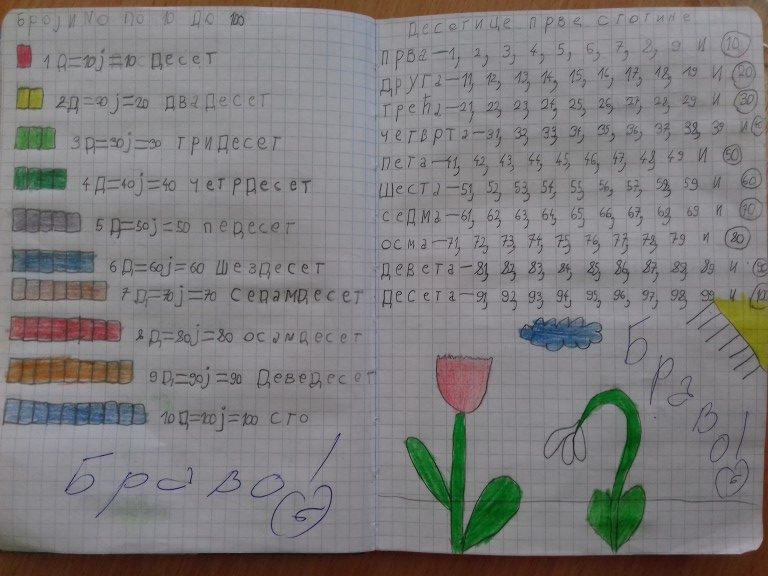 Бројимо по 10 до 100
1Д=10ј=10 десет
2Д=20ј=20 двадесет
3Д=30ј=30 тридесет
4Д=40ј=40 четрдесет
5Д=50ј=50 педесет
6Д=60ј=60 шездесет
7Д=70ј=70 седамдесет
8Д=80ј=80 осамдесет
9Д=90ј=90 деведесет
10Д=100ј=100 сто
Браво!
5
Десетице прве стотине
прва-1, 2, 3, 4, 5, 6, 7, 8, 9 и 10
друга-11, 12, 13, 14, 15, 16, 17, 18, 19 и 20
трећа-21, 22, 23, 24, 25, 26, 27, 28, 29 и 30
четврта-31, 32, 33, 34, 35, 36, 37, 38, 39 и
пета-41, 42, 43, 44, 45, 46, 47, 48 49 и 50
шеста-51, 52, 53, 54, 55, 56, 57, 58, 59 и 60
седма-61, 62, 63, 64, 65, 66, 67, 68, 69 и 70
осма-71, 72, 73, 74, 75, 76, 77, 78, 79 и 80
девета-81, 82, 83, 84, 85, 86, 87, 88, 89 и 90
десета-91, 92, 93, 94, 95, 96, 97, 98, 99 и
Браво!
5